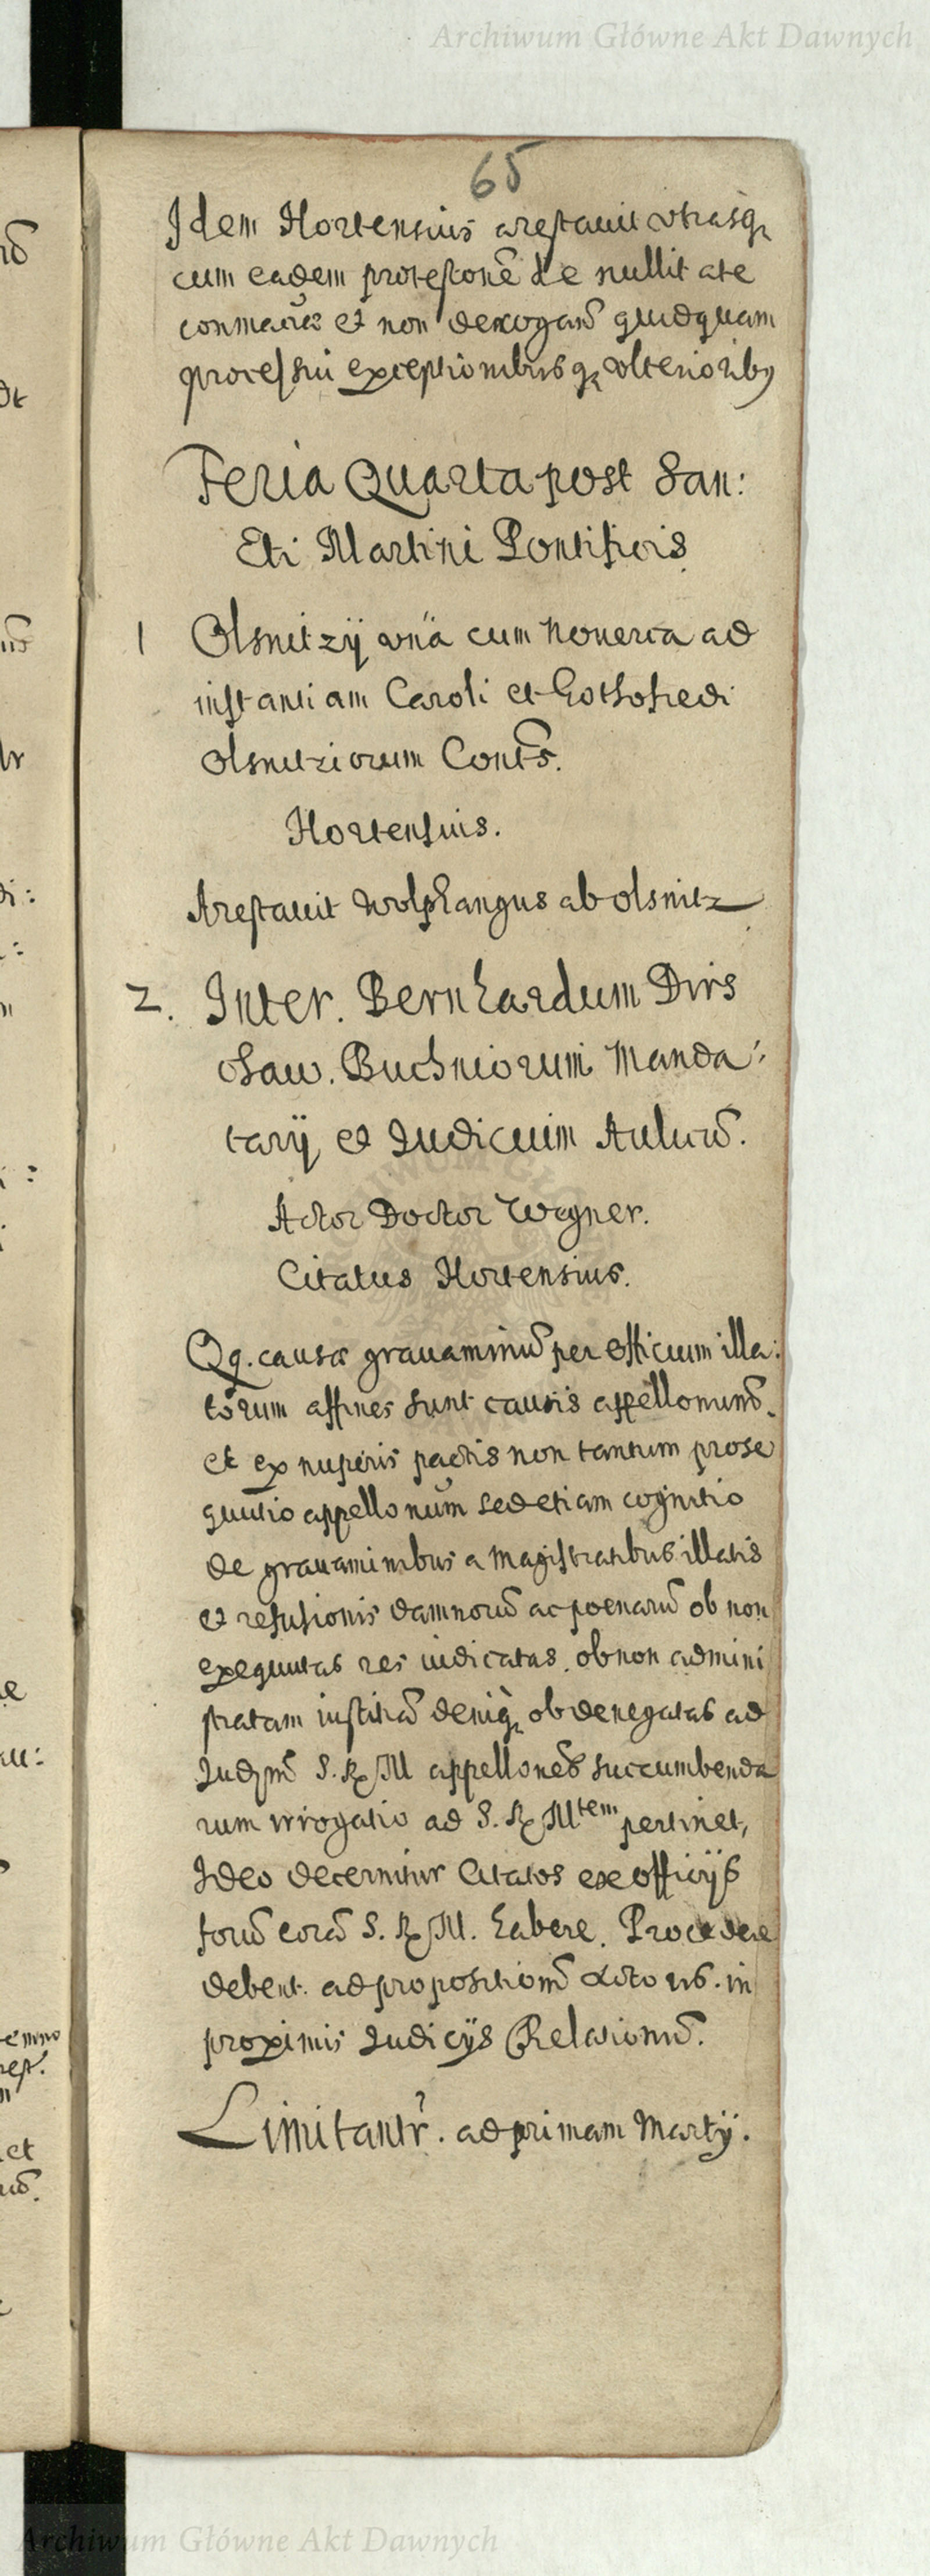 Archiwum Główne Akt Dawnych
65
Idem Hortensius arestauit vtrasq
cum eadem protestone de nullitate
et non derogand quidquam
processui exceptionibusq vlterioribus
Feria Quarta post San:
cti Martini Pontificis
1 Olsnitzij vna cum Nouerca ad
instantiam Caroli et Gothofredi
Olsnitziorum Conts.
Hortensius.
Arestauit Wolphangus ab Olsnitz
2. Inter. Bernhardum Dirs
Buchniorum Manda:
tarij et Iudicium Aulicu.
Actor Doctor Wegner.
Citatus Hortensius.
Qq. causæ grauaminu per officium illa:
torum affines sunt causis appellonum
et ex nuperis pactis non tantum prose
quutio appellonum sed etiam cognitio
de grauaminibus a Magistratibus illatis
et refusionis damnoru ac poenaru ob non
exequutas res iudicatas. ob non admini
stratam iustitia deniq ob denegatas ad
Iudm S. R. M appellones succumbenda
rum irrogatio ad S. R. Mtem pertinet,
Ideo decernitur Citatos ex officijs
foru cora S. R. M. habere. Procedere
debent. ad propositionem Actoris. in
proximis Iudicijs Relationu.
Limitantr. ad primam Martij.
Archiwum Główne Akt Dawnych